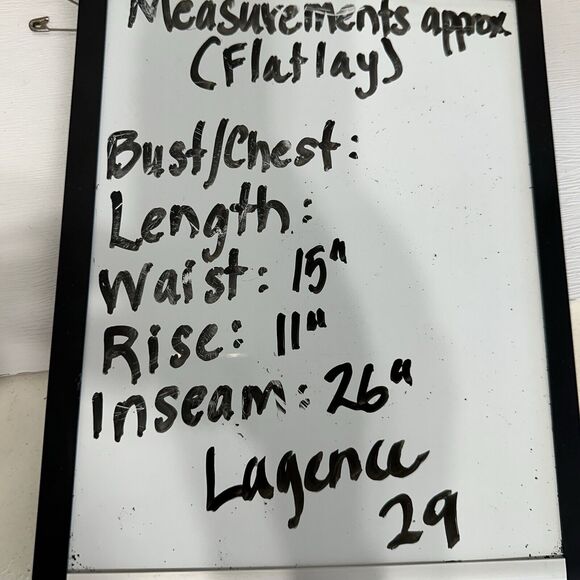 Measurements approx.
(Flatlay)
Bust/Chest:
Length:
Waist: 15"
Rise: 11"
Inseam: 26"
Lagence
29